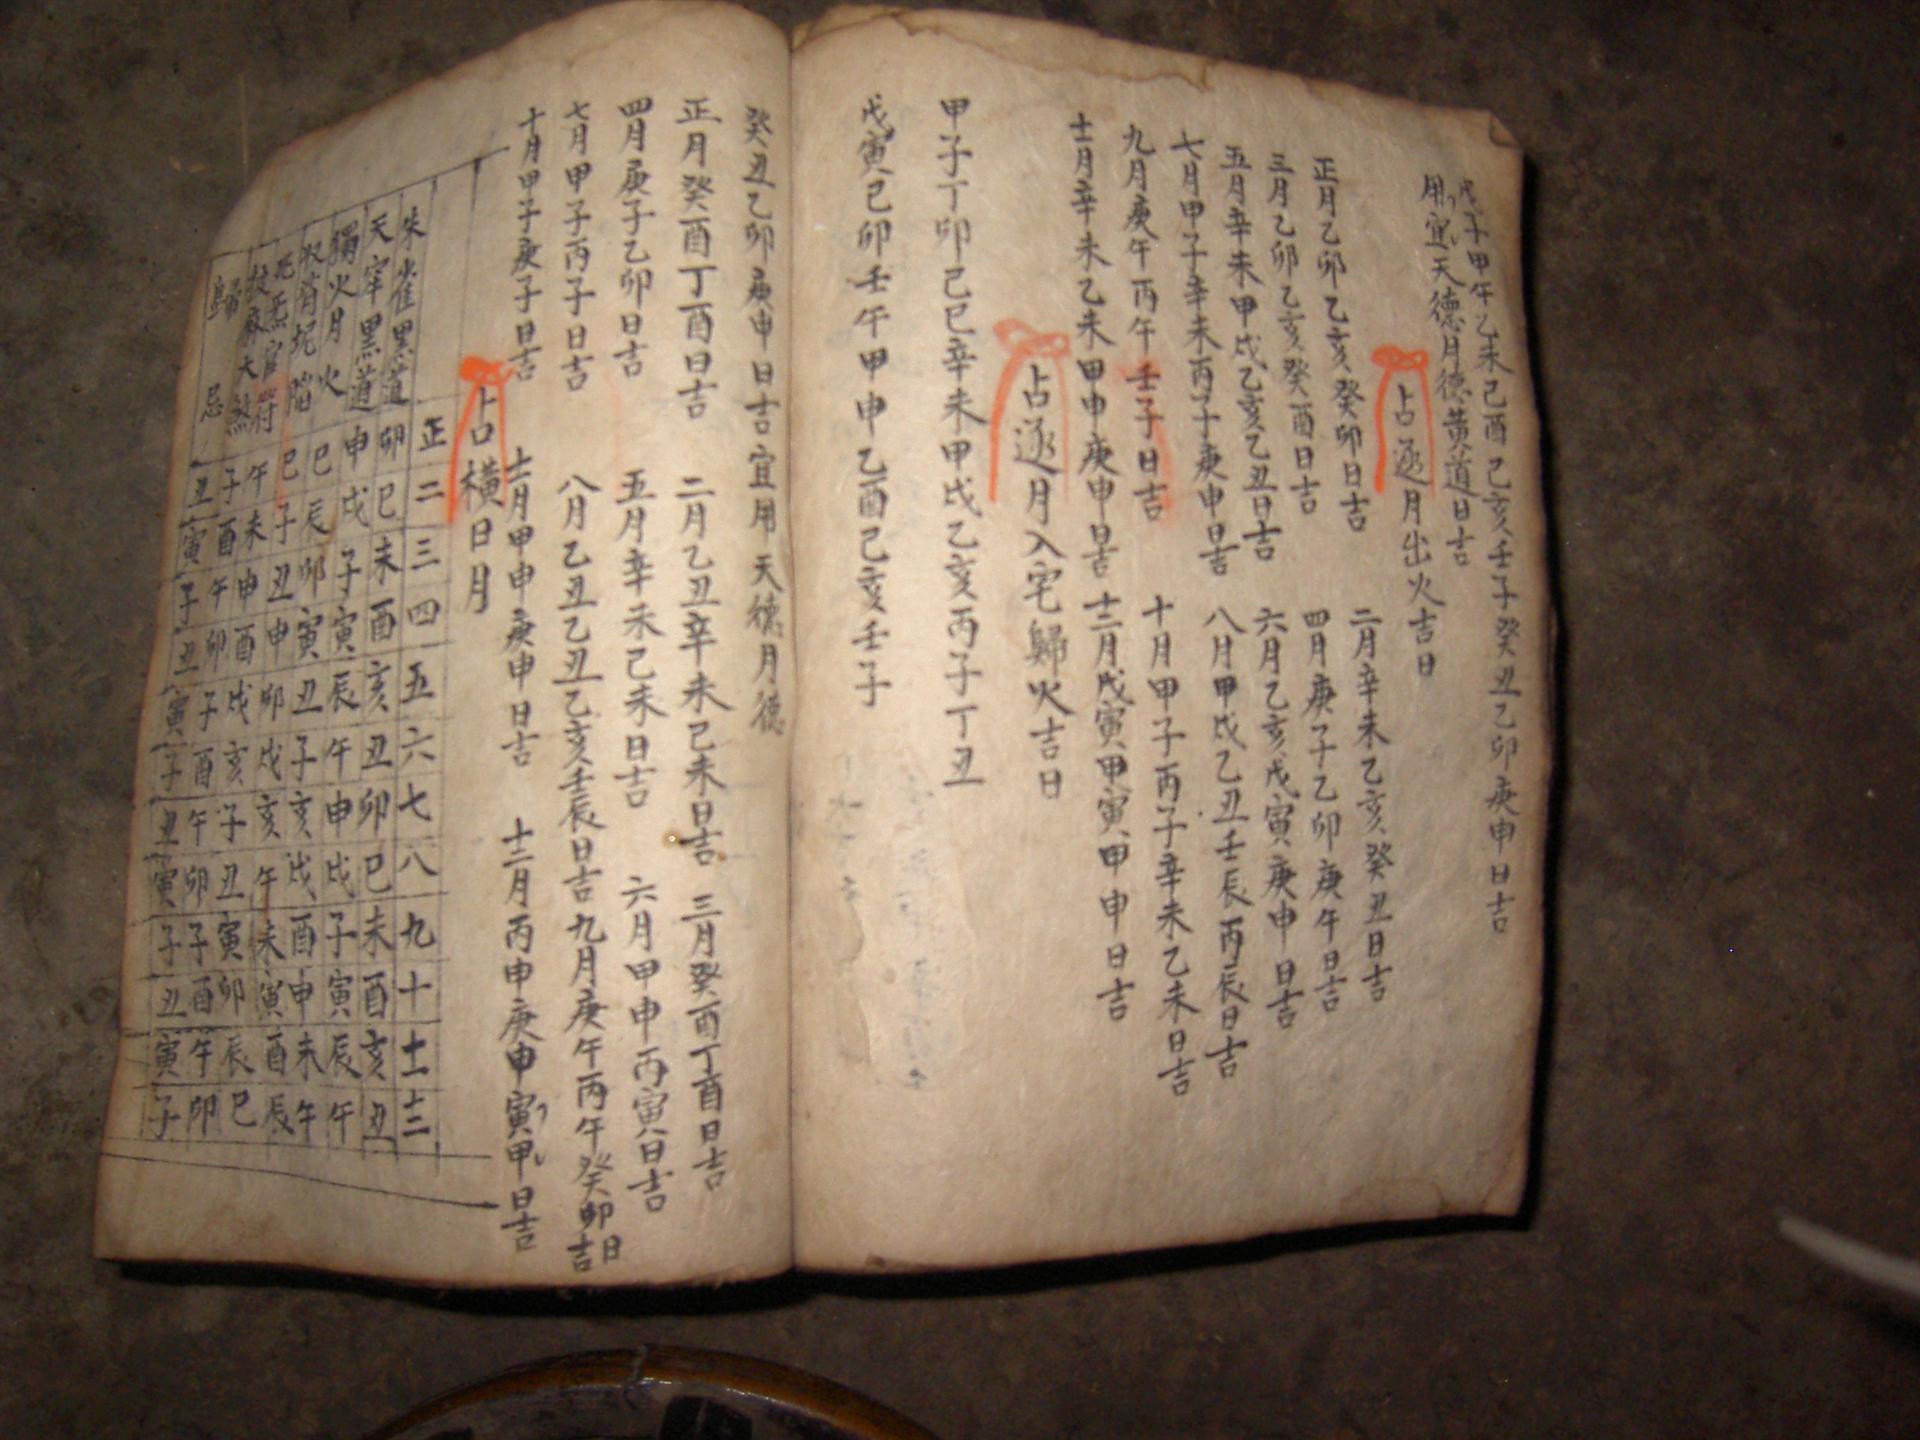 戊子甲午乙未己酉己亥壬子癸丑乙卯庚申日吉
用宜天德月德黄道日吉
占逐月出火吉日
正月乙卯乙亥癸卯日吉 二月辛未乙亥癸丑日吉
三月乙卯乙亥癸酉日吉 四月庚子乙卯庚午日吉
五月辛未甲戌乙亥乙丑日吉 六月乙亥戊寅庚申日吉
七月甲子辛未丙子庚申日吉 八月甲戌乙丑壬辰丙辰日吉
九月庚午丙午壬子日吉 十月甲子丙子辛未乙未日吉
十一月辛未乙未甲申庚申日吉 十二月戊寅甲寅甲申日吉
占逐月入宅歸火吉日
甲子丁卯己巳辛未甲戌乙亥丙子丁丑
戊寅己卯壬午甲申乙酉己亥壬子
癸丑乙卯庚申日吉宜用天德月德
正月癸酉丁酉日吉 二月乙丑辛未己未日吉 三月癸酉丁酉日吉
四月庚子乙卯日吉 五月辛未己未日吉 六月甲申丙寅日吉
七月甲子丙子日吉 八月乙丑乙丑乙亥壬辰日吉 九月庚午丙午癸卯日吉
十月甲子庚子日吉 十一月甲申庚申日吉 十二月丙申庚申寅甲日吉
占橫日月
正二三四五六七八九十十一十二
朱雀黑道 卯巳未酉亥丑卯巳未酉亥丑
天牢黑道 申戌子寅辰午申戌子寅辰午
獨火月火 巳辰卯寅丑子亥戌酉申未午
巳子丑申卯戌亥午未寅酉辰
午未申酉戌亥子丑寅卯辰巳
大煞 子酉午卯子酉午卯子酉午卯
歸忌 丑寅子丑寅子丑寅子丑寅子